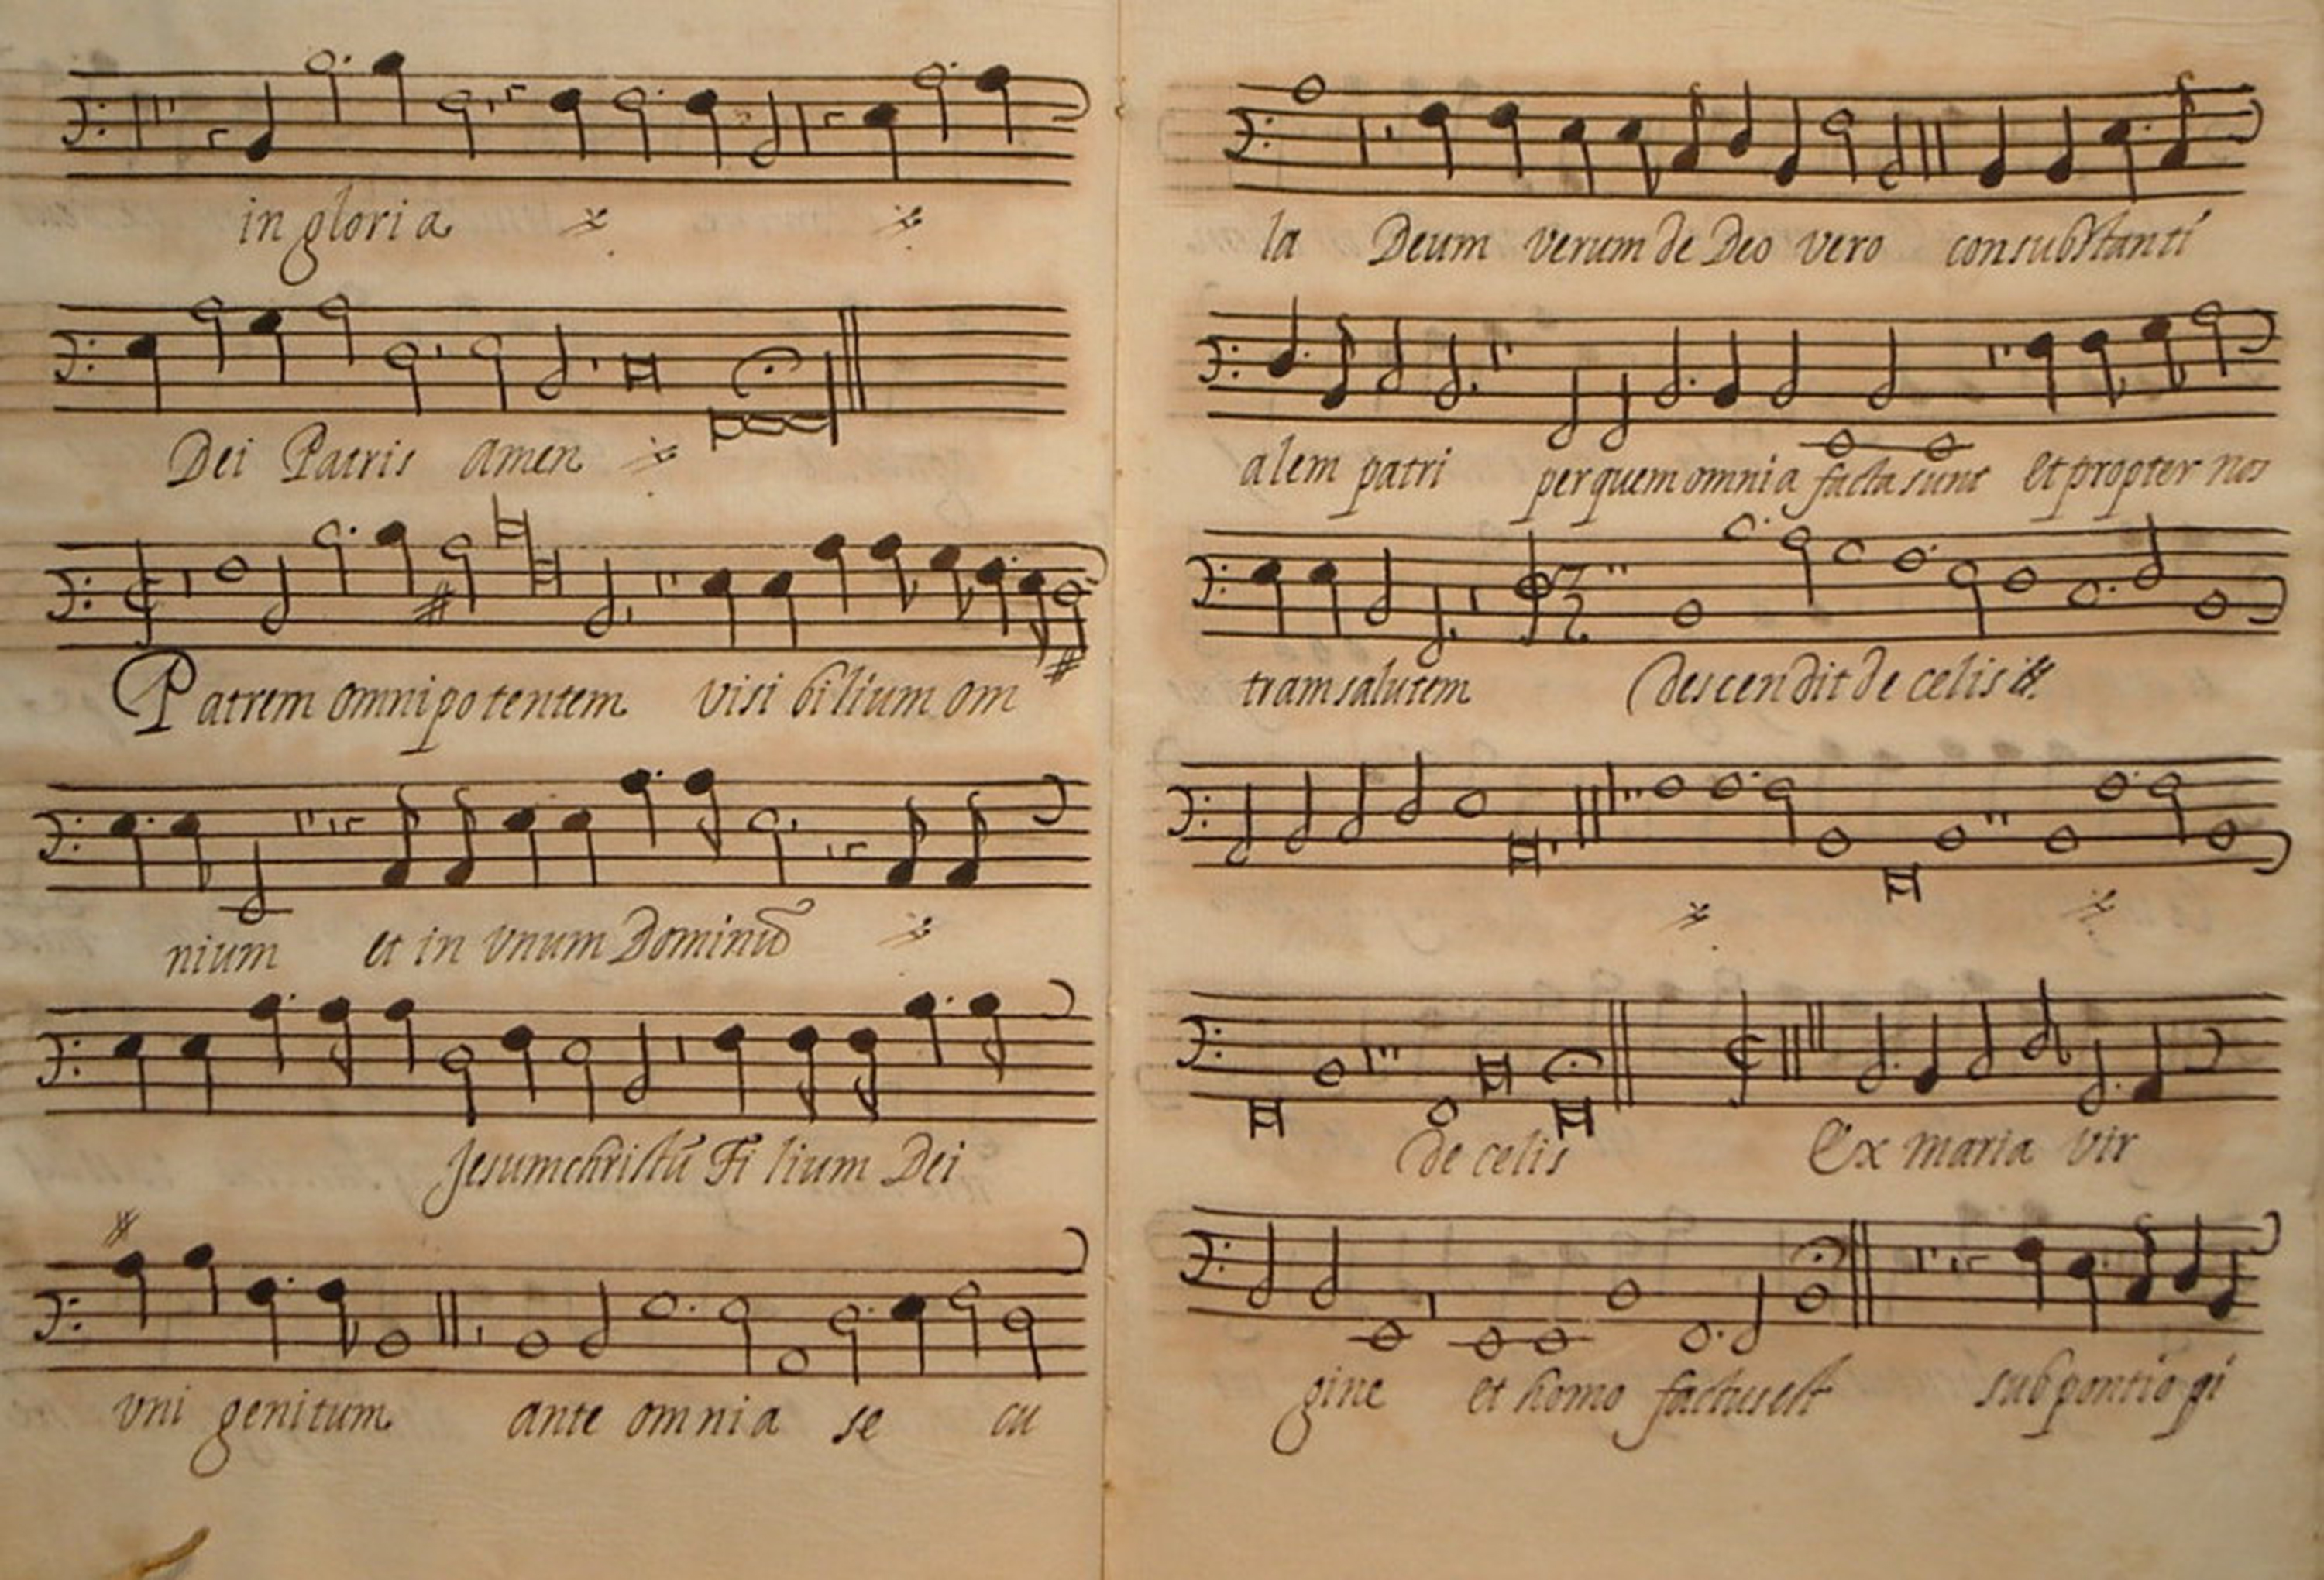 in gloria
Dei Patris amen
Patrem omnipotentem visibilium om
nium et in vnum Dominũ
Jesum christũ Filium Dei
vni genitum ante omnia se cu
la Deum verum de Deo vero consubstanti
alem patri per quem omnia facta sunt et propter nos
tram salutem descendit de celis ij.
de celis Ex maria vir
gine et homo factus est sub pontio pi